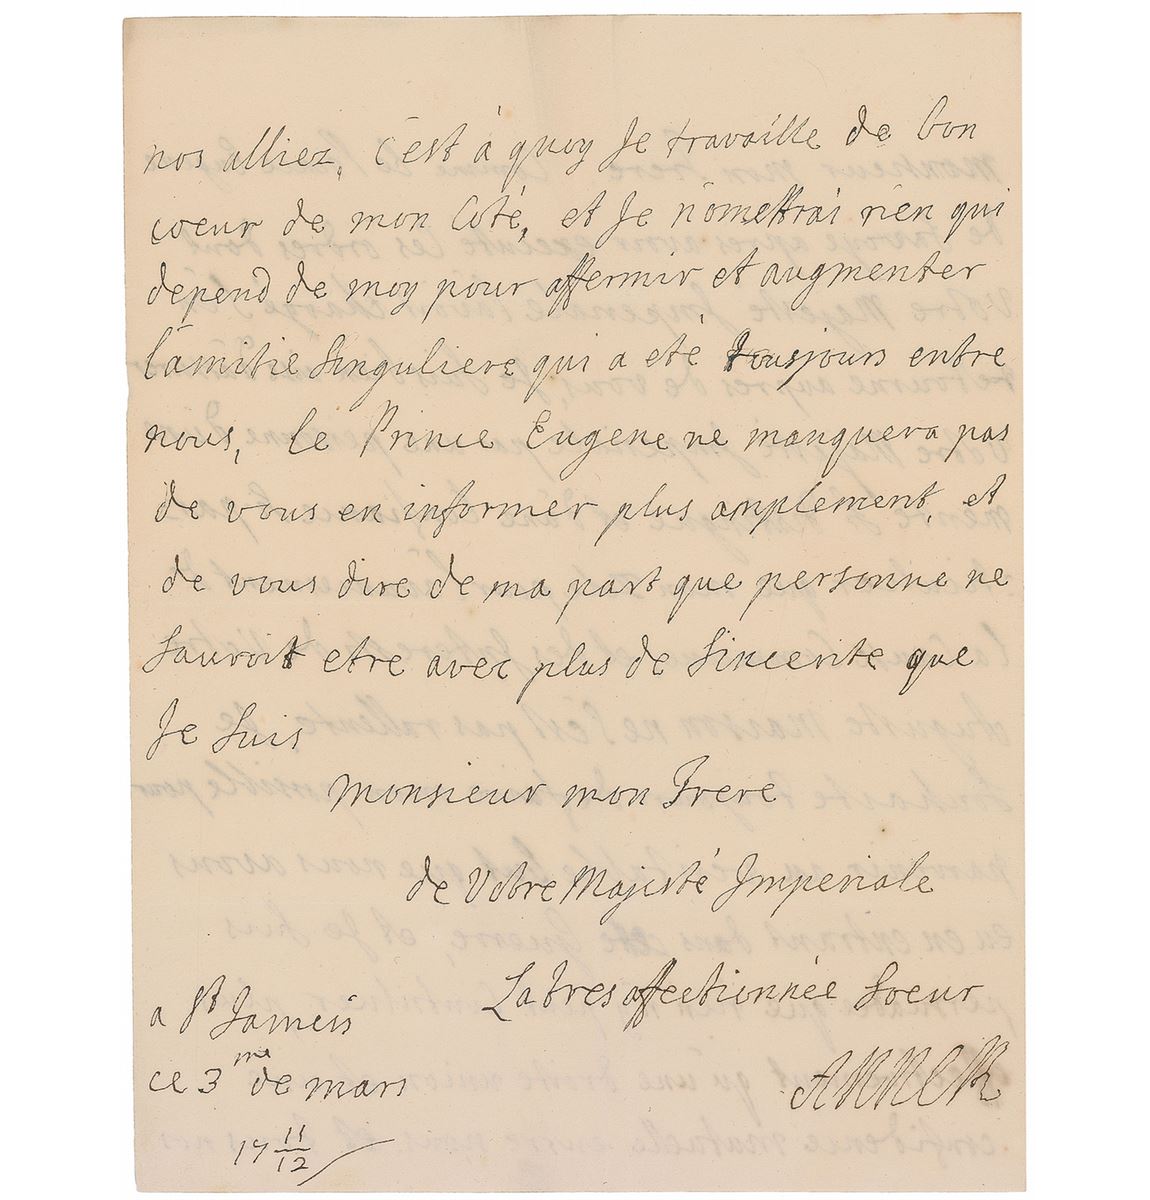 nos alliez, c'est à quoy Je travaille de bon
coeur de mon Coté, et Je n'omettrai rien qui
dépend de moy pour affermir et augmenter
l'amitie Singuliere qui a eté tousjours entre
nous, Le Prince Eugene ne manquera pas
de vous en informer plus amplement, et
de vous dire de ma part que personne ne
Sauroit etre avec plus de Sincerite que
Je Suis
Monsieur mon Frere
de Votre Majesté Imperiale
La tres affectionnée Soeur
a St Jameis
ce 3me de mars
17 11/12
ANNE R